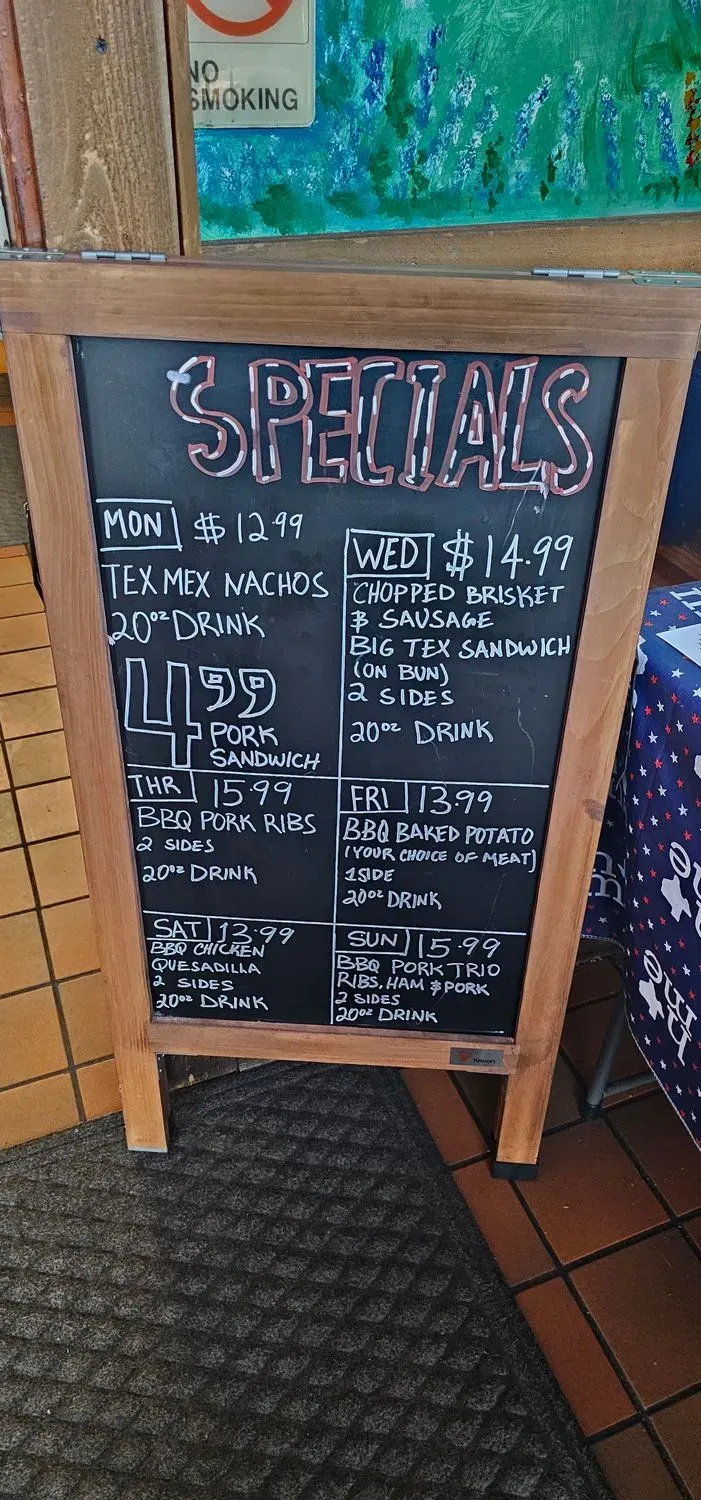 NO
SMOKING
SPECIALS
MON $12.99
TEX MEX NACHOS
20oz DRINK
4.99
PORK
SANDWICH
WED $14.99
CHOPPED BRISKET
& SAUSAGE
BIG TEX SANDWICH
(ON BUN)
2 SIDES
20oz DRINK
THR 15.99
BBQ PORK RIBS
2 SIDES
20oz DRINK
FRI 13.99
BBQ BAKED POTATO
(YOUR CHOICE OF MEAT)
1 SIDE
20oz DRINK
SAT 13.99
BBQ CHICKEN
QUESADILLA
2 SIDES
20oz DRINK
SUN 15.99
BBQ PORK TRIO
RIBS, HAM & PORK
2 SIDES
20oz DRINK